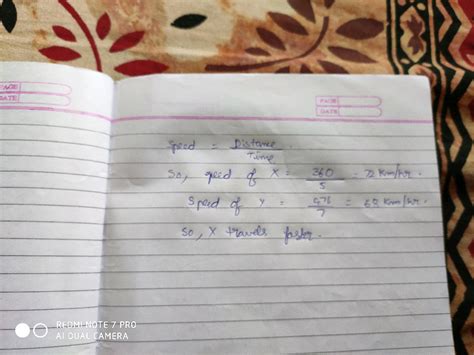 PAGE
DATE
PAGE
DATE
Speed = Distance / Time
So, speed of X = 360 / 5 = 72 Km/hr.
Speed of Y = 476 / 7 = 68 Km/hr.
So, X travels faster.
REDMI NOTE 7 PRO
AI DUAL CAMERA